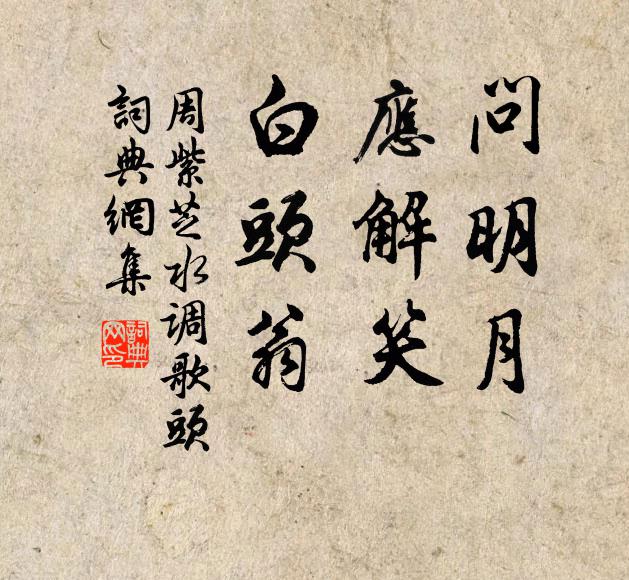 問明月
應解笑
白頭翁
周紫芝水调歌頭
詞典網集
詞典
网印